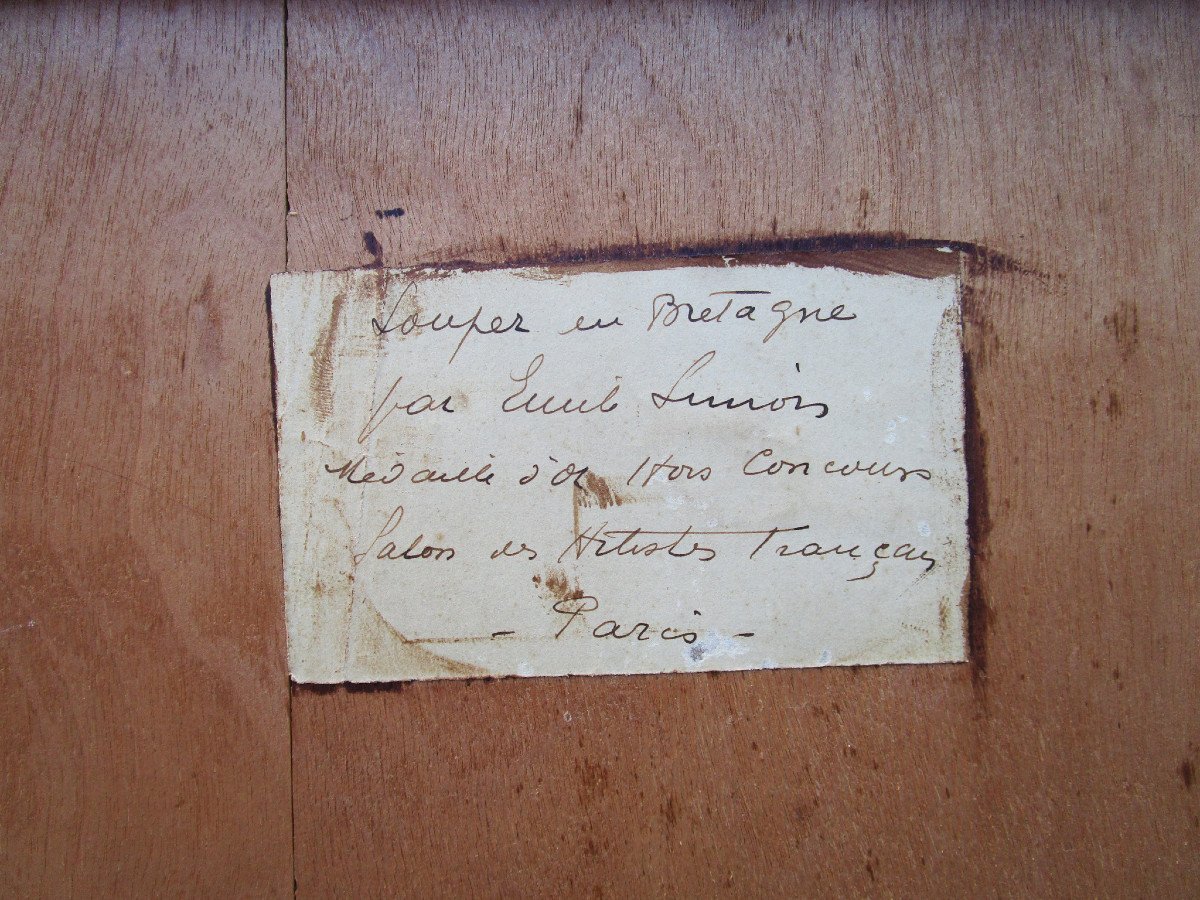 Souper en Bretagne
par Emile Simon
Médaille d'Or Hors Concours
Salon des Artistes Français
- Paris -